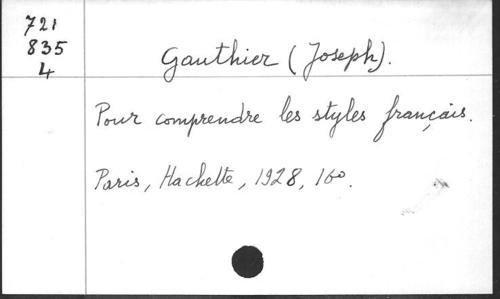 721
835
4
Gauthier (Joseph).
Pour comprendre les styles français.
Paris, Hachette, 1928, 16o.